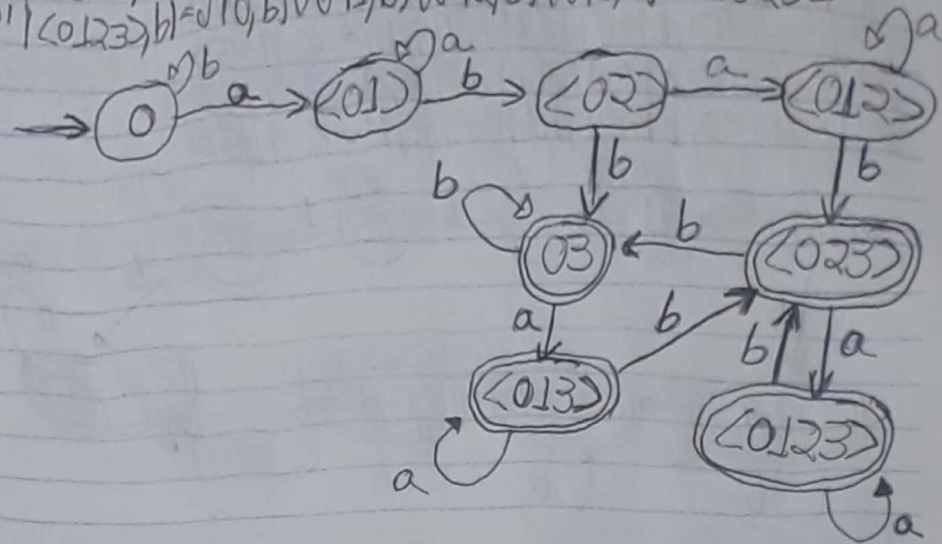 |<0123>,b)=
b a
0 a <01> b <02> a <012> a
b b b
03 b <023>
a b b a
<013> <0123>
a a